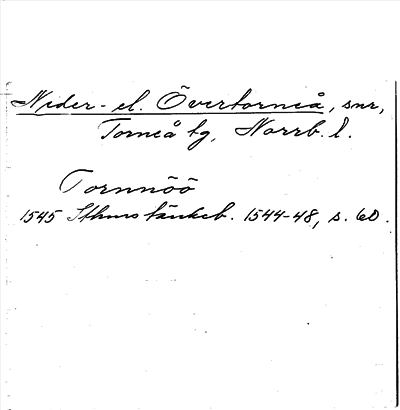 Neder- el. Övertorneå, snr,
Torneå tg, Norrb. l.
Tornnöö
1545 Sthms tänkeb. 1544-48, s. 60.